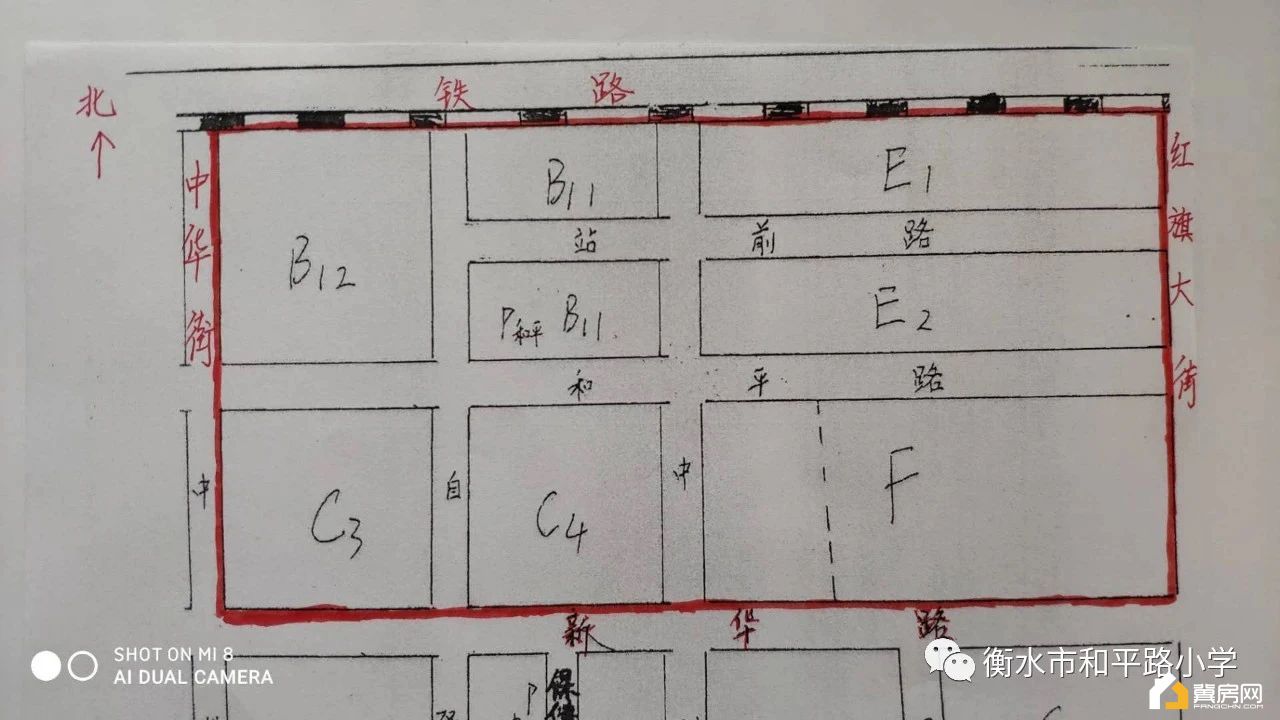 北
铁 路
中华街
红旗大街
B11
E1
B12
站 前 路
P和平 B11
E2
和 平 路
中
C3
自
C4
中
F
新 华 路
P
保
SHOT ON MI 8
AI DUAL CAMERA
衡水市和平路小学
冀房网
FANGCHN.COM